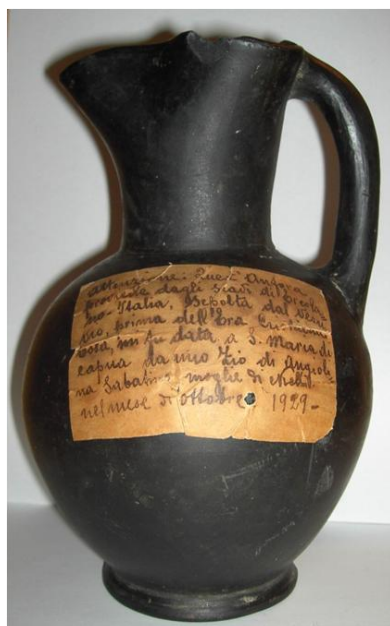 attenzione: Quest' Anfora
proviene dagli scavi di Ercola
no-Italia, Sepolta dal Vesu
vio, prima dell' Era
mi fu data, a S. Maria di
capua da uno Zio di Angioli
na moglie di
nel mese di ottobre 1929-